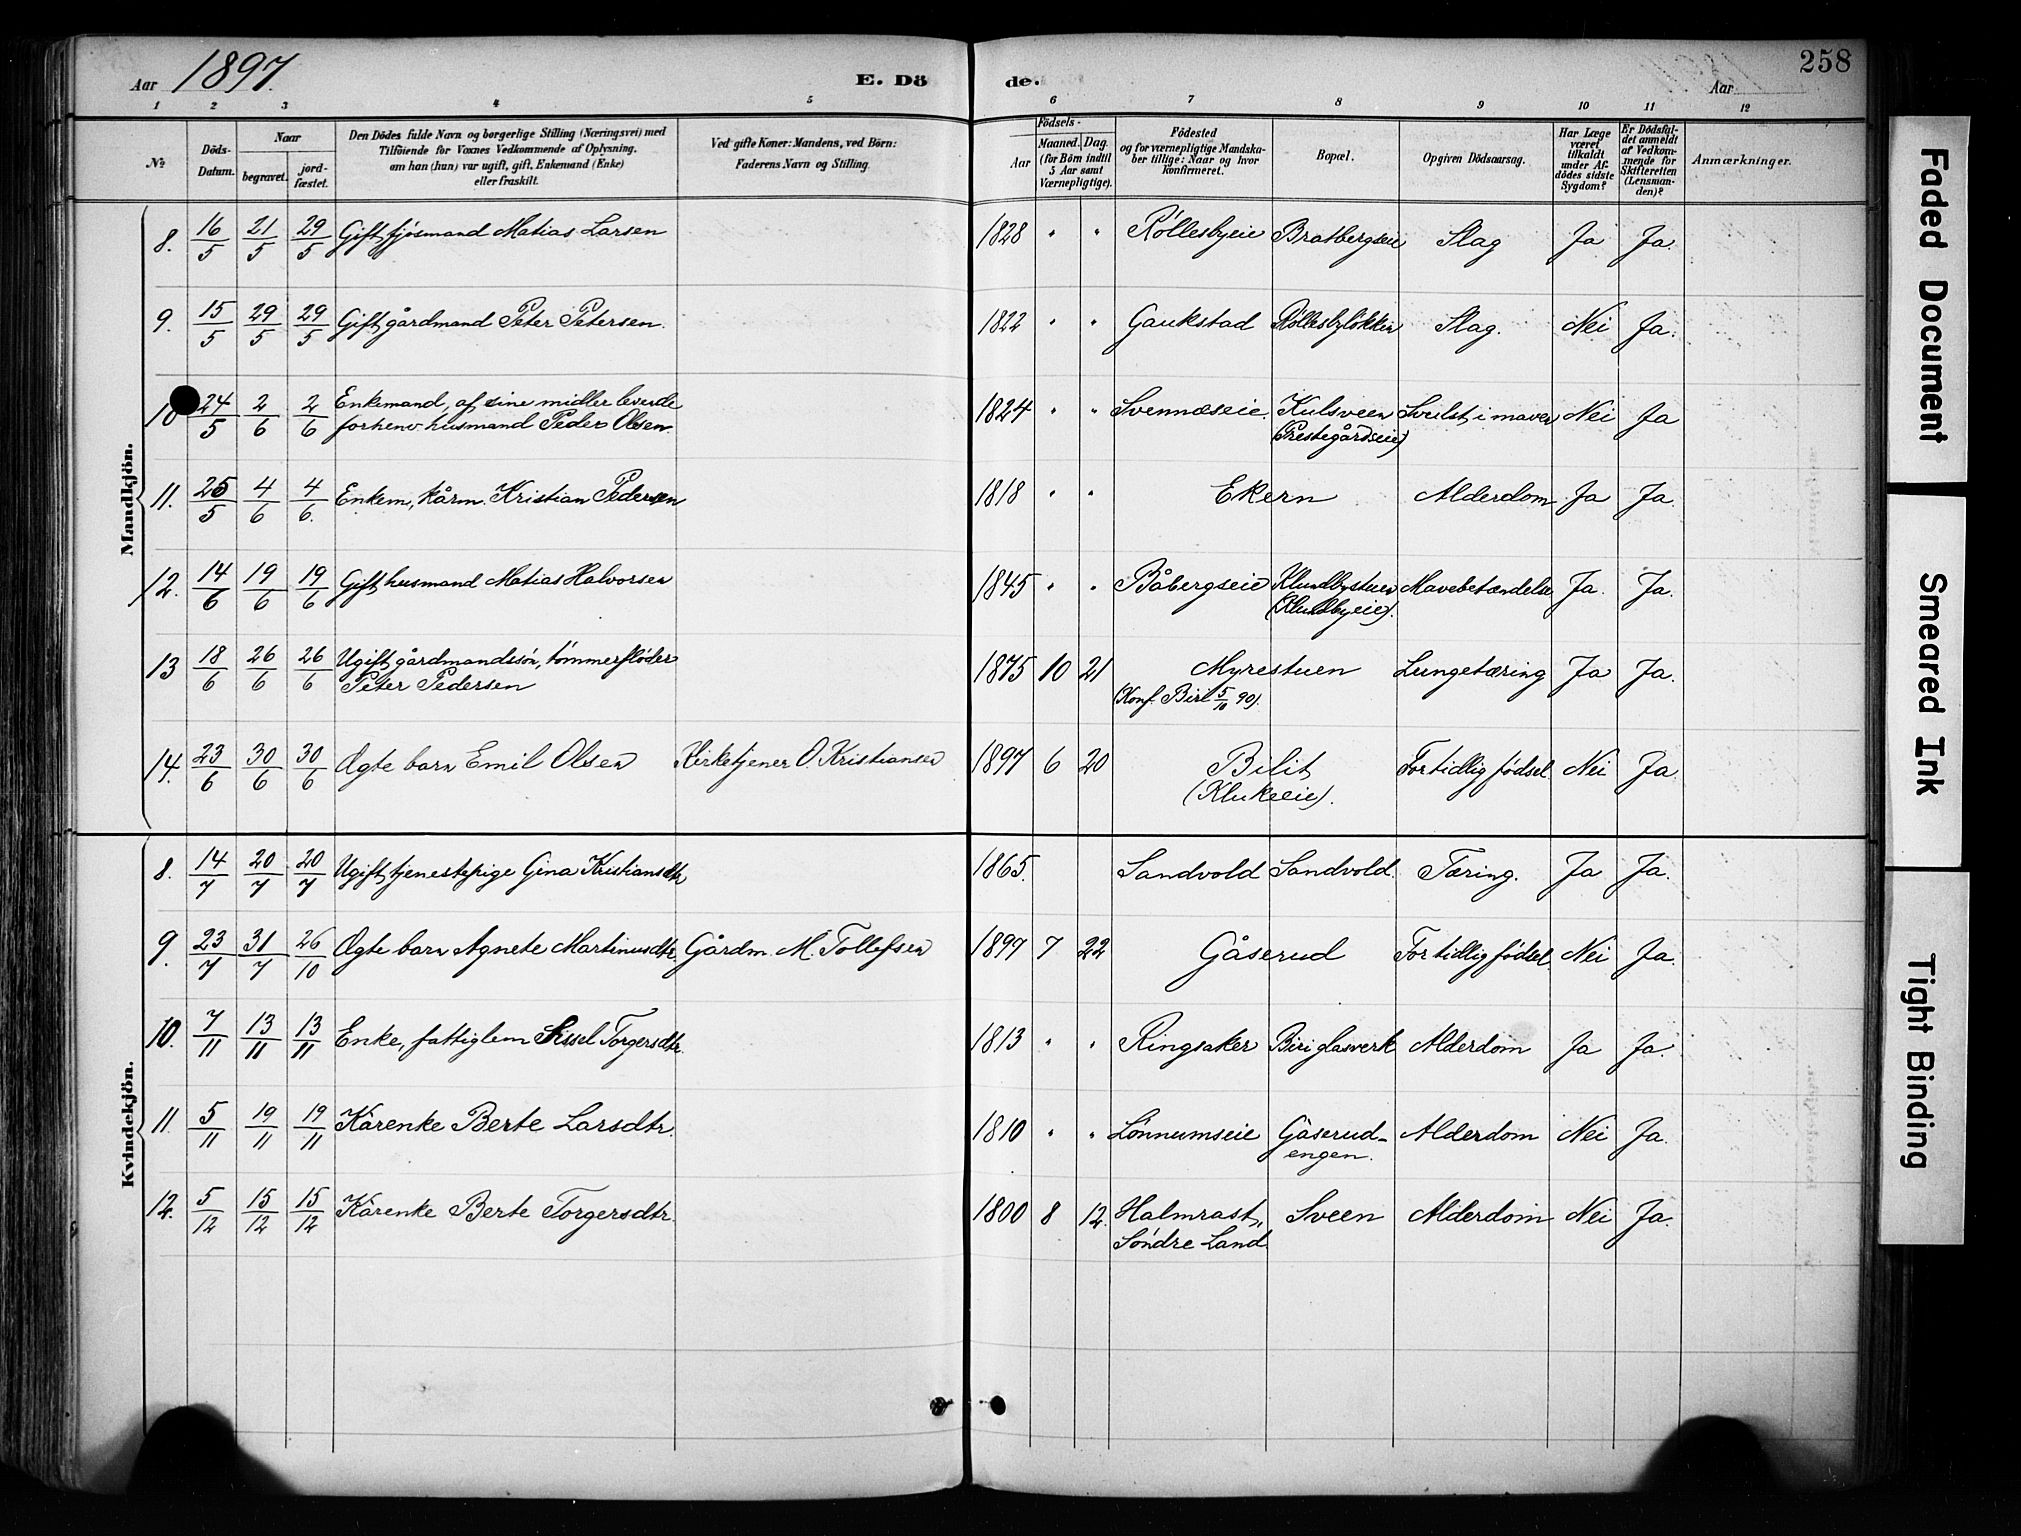 Aar 1897. E. Dö de. Aar 258
1 2 3 4 5 6 7 8 9 10 11 12
№ Döds-Datum. Naar begravet. jord-fæstet. Den Dödes fulde Navn og borgerlige Stilling (Næringsvei) med Tilföiende for Voxnes Vedkommende af Oplysning, om han (hun) var ugift, gift, Enkemand (Enke) eller fraskilt. Ved gifte Koner: Mandens, ved Börn: Faderens Navn og Stilling. Födsels- Aar Maaned. Dag. (for Börn indtil 5 Aar samt Værnepligtige). Födested og for værnepligtige Mandskaber tillige: Naar og hvor konfirmeret. Bopæl. Opgiven Dödsaarsag. Har Læge været tilkaldt under Afdödes sidste Sygdom? Er Dödsfaldet anmeldt af Vedkommende for Skifteretten (Lensmanden)? Anmærkninger.
Mandkjön.
8. 16/5 21/5 29/5 Gift fjøsmand Matias Larsen 1828 " " Røllesbyeie Bratbergseie Slag Ja Ja.
9. 15/5 29/5 29/5 Gift gårdmand Peter Petersen. 1822 " " Gaukstad Røllesbyløkken Slag. Nei Ja.
10 24/5 2/6 2/6 Enkemand, af sine midler levende
forhenv. husmand Peder Olsen. 1824 " " Svennæseie. Kulsveen (Prestegårdseie) Svulst i maven Nei Ja
11. 25/5 4/6 4/6. Enkem., kårm. Kristian Pedersen 1818 " " Ekern Alderdom Ja Ja.
12. 14/6 19/6 19/6 Gift husmand Matias Halvorsen 1845 " " Båbergseie Klundbystuen (Klundbyeie). Mavebetændelse Ja. Ja.
13 18/6 26/6 26/6 Ugift gårdmandssøn, tømmerfløder
Peter Pedersen 1875 10 21 Myrestuen (Konf. Biri 5/10 90). Lungetæring Ja Ja.
14. 23/6 30/6 30/6 Ægte barn Emil Olsen Kirketjener O. Kristiansen 1897 6 20 Bilit (Klukeeie). For tidlig fødsel Nei Ja
Kvindekjön.
8. 14/7 20/7 20/7 Ugift tjenestepige Gina Kristiansdtr 1865. Sandvold Sandvold. Tæring. Ja Ja.
9. 23/7 31/7 26/10 Ægte barn Agnete Martinusdtr. Gårdm. M. Tollefsen 1897 7 22 Gåserud For tidlig fødsel. Nei Ja.
10. 7/11 13/11 13/11 Enke, fattiglem Sissel Torgersdtr. 1813 " " Ringsaker Biri glasverk Alderdom Ja Ja.
11. 5/11 19/11 19/11 Kårenke Berte Larsdtr. 1810 " " Lønnumseie Gåserud-engen. Alderdom Nei Ja.
12. 5/12 15/12 15/12 Kårenke Berte Torgersdtr. 1800 8 12. Halmrast, Søndre Land. Sveen Alderdom Nei Ja.
Faded Document
Smeared Ink
Tight Binding